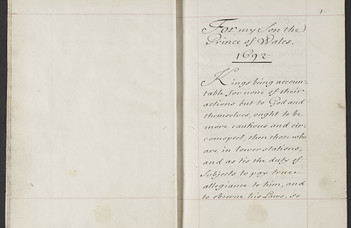 1.
For my Son the
Prince of Wales.
1692
Kings being accoun=
table for none of their
actions but to God and
themselves, ought to be
more cautious and cir=
cumspect, then those who
are in lower stations,
and as tis the duty of
Subjects to pay true
allegiance to him, and
to observe his Laws, so